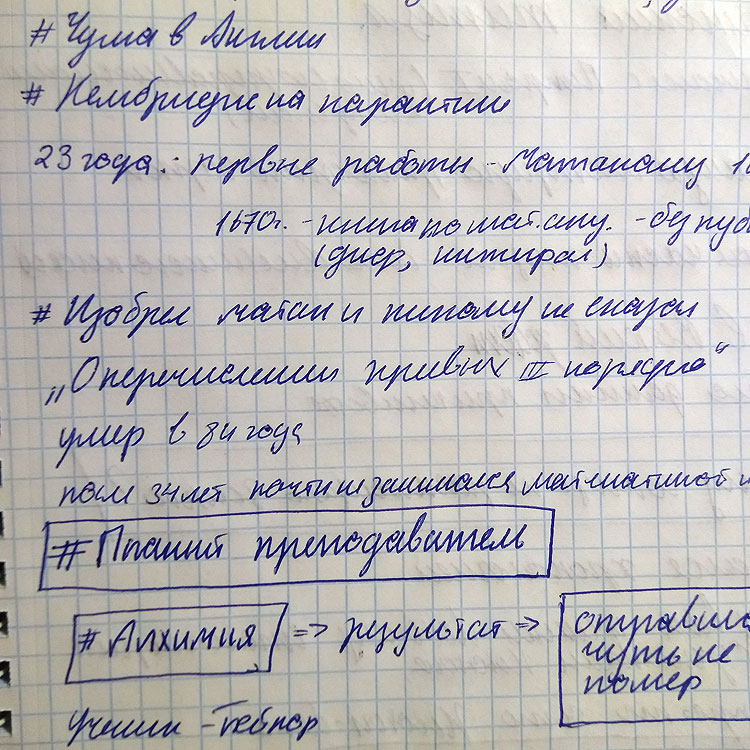 # Чума в Англии
# Кембридж на карантин
23 года: первые работы - Матанализу
1670г. - книга по мат.ану. - без
(диф, интеграл)
# Изобрел матан и никому не сказал
„О перечислении кривых III порядка“
умер в 84 года
после 34 лет почти не занимался математикой и
# Плохой преподаватель
# Алхимия => результат =>
отравился
чуть не
помер
Ученик -